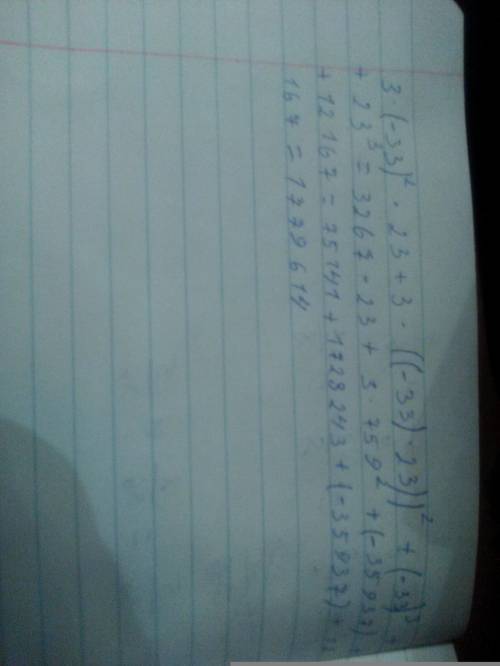 3·(-33)²·23+3·((-33)·23))²+(-33)³+
+23³=3267·23+3·759²+(-35937)+
+12167=75141+1728243+(-35937)+12
167=1779614